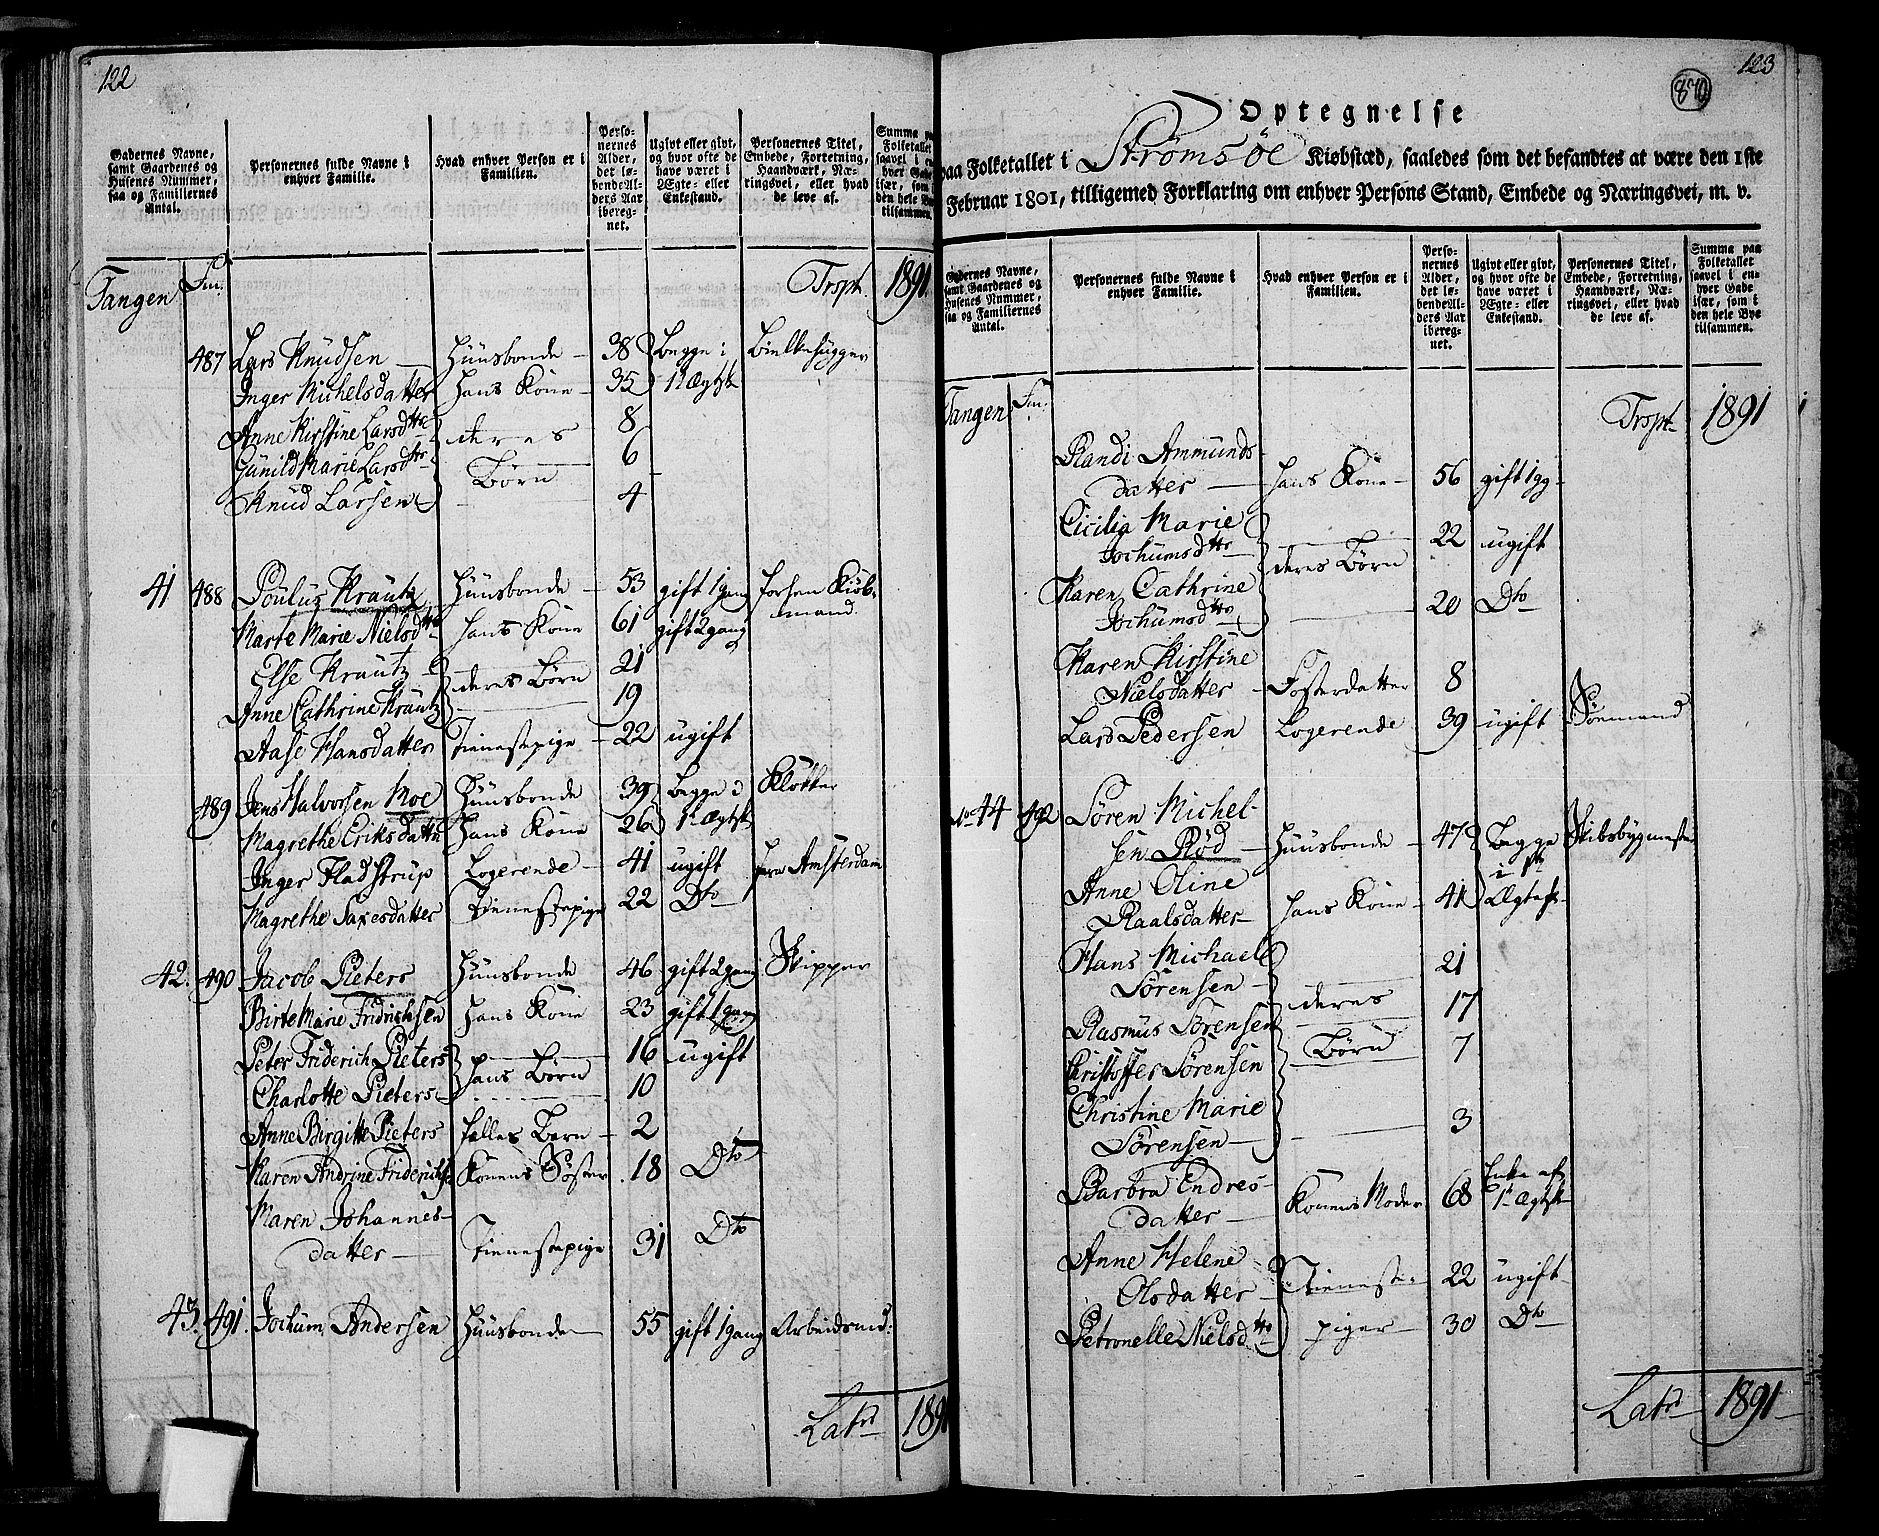 122
Gadernes Navne,
samt Gaardenes og
Husenes Nummer,
saa og Familiernes
Antal.
Personernes fulde Navne i
enhver Familie.
Hvad enhver Person er i
Familien.
Perso-
nernes
Alder,
det lø-
bende Al-
ders Aar
ibereg-
net.
Ugivt eller givt,
og hvor ofte de
have været i
Ægte- eller
Enkestand.
Personernes Titel,
Embede, Forretning,
Haandværk, Næ-
ringsvei, eller hvad
de leve af.
Summa paa
Folketallet
saavel i en
hver Gade
især, som i
den hele Bye
tilsammen.
Tangen Fm. Trspt. 1891.
487 Lars Knudsen Huusbonde 38 Begge i Bielkehugger
Inger Michelsdatter hans Kone 35 1t Ægtsk
Anne Kirstine Larsdttr deres 8
Gunild Marie Larsdttr Børn 6
Knud Larsen 4
41 488 Poulus Krautz Huusbonde 53 gift 1 gang forhen Kiøb-
mand.
Marte Marie Nielsdttr hans Kone 61 gift 2 gang
Else Krautz deres Børn 21
Anne Cathrine Krautz 19
Aase Hansdatter Tienestepige 22 ugift
489 Jens Halvorsen Moe Huusbonde 39 Begge i Klokker
Magrethe Eriksdattr hans Kone 26 1t Ægtsk
Inger Fladstrup Logerende 41 ugift fra Amsterdam
Magrethe Saxesdatter Tienestepige 22 Dto
42. 490 Jacob Pieters Huusbonde 46 gift 2 gang Skipper
Birte Marie Fridrichsen hans Kone 23 gift 1 gang
Peter Friderich Pieters hans Børn 16 ugift
Charlotte Pieters 10
Anne Birgitte Pieters fælles Barn 2
Karen Andrine Friderichs Konens Søster 18 Dto
Maren Johannes-
datter Tienestepige 31 Dto
43. 491. Jochum Andersen Huusbonde 55 gift 1 gang Arbeidsmd:
Latrs 1891
123
870
Optegnelse
paa Folketallet i Strømsøe Kiøbstæd, saaledes som det befandtes at være den 1ste
Februar 1801, tilligemed Forklaring om enhver Persons Stand, Embede og Næringsvei, m. v.
Gadernes Navne,
samt Gaardenes og
Husenes Nummer,
saa og Familiernes
Antal.
Personernes fulde Navne i
enhver Familie.
Hvad enhver Person er i
Familien.
Perso-
nernes
Alder,
det lø-
bende Al-
ders Aar
ibereg-
net.
Ugivt eller givt,
og hvor ofte de
have været i
Ægte- eller
Enkestand.
Personernes Titel,
Embede, Forretning,
Haandværk, Næ-
ringsvei, eller hvad
de leve af.
Summa paa
Folketallet
saavel i en-
hver Gade
især, som i
den hele Bye
tilsammen.
Tangen Fm. Trspt 1891
Randi Ammunds-
datter hans Kone 56 gift 1 gg
Cicilia Marie
Jochumsdttr 22 ugift
deres Børn
Karen Cathrine
Jochumsdttr 20 Dto
Karen Kirstine
Nielsdatter Fosterdatter 8
Lars Pedersen Logerende 39 ugift Søemand
No 44 492 Søren Michel-
sen Rød Huusbonde 47 Begge Skibsbygmester
i 1t
Anne Oline
Raalsdatter hans Kone 41 Ægtesk.
Hans Michael
Sørensen 21
deres
Rasmus Sørensen 17
Børn
Christoffer Sørensen 7
Christine Marie
Sørensen 3
Barbra Endres-
datter Konens Moder 68 Enke af
1t Ægtsk
Anne Helene
Olsdatter Tieneste- 22 ugift
Petronelle Nielsdttr piger 30 Dto
Latrs 1891